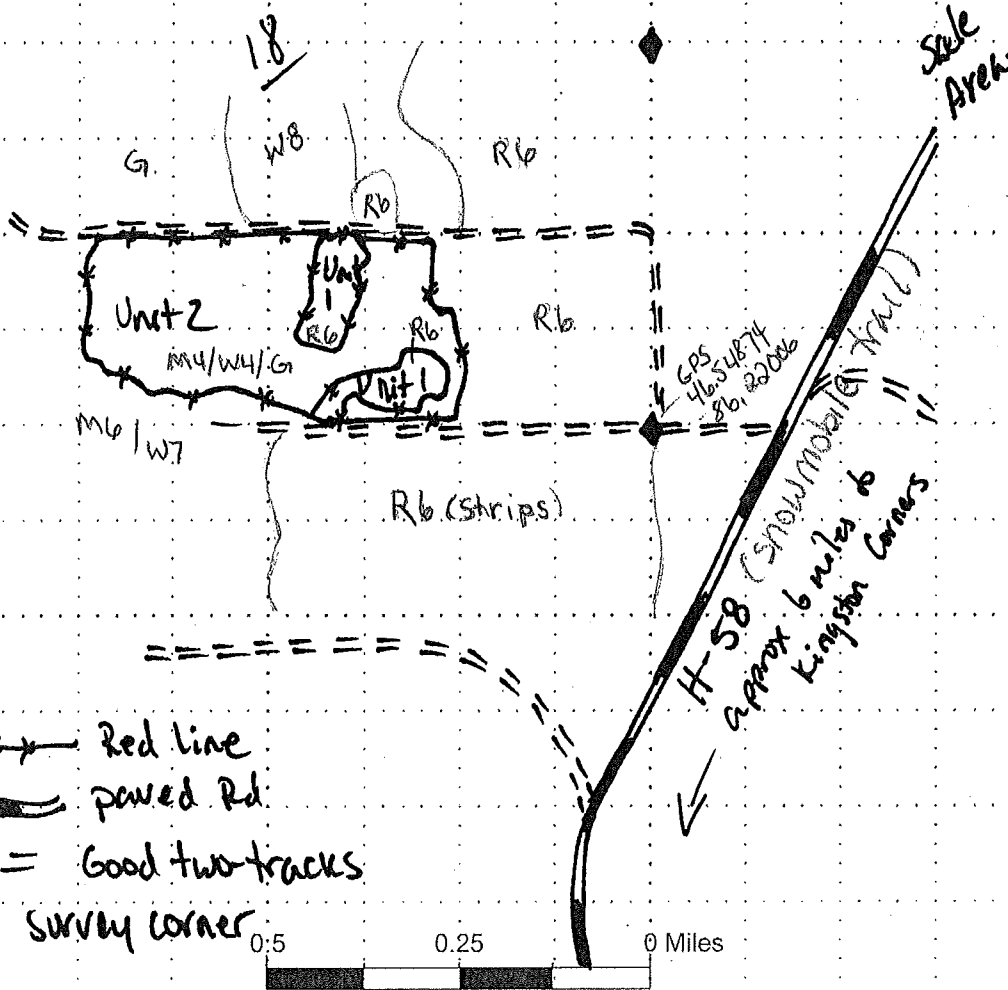 18
Sale
Area
G.
W8
R6
R6
Unit
1
R6
Unit 2
R6
R6
M4/W4/G
nit 1
GPS
46.54874
-86.22006
M6/W7
R6 (Strips)
H-58 (snowmobile trail)
approx 6 miles to
Kingston Corners
Red line
paved Rd
= Good two-tracks
survey corner
0.5 0.25 0 Miles